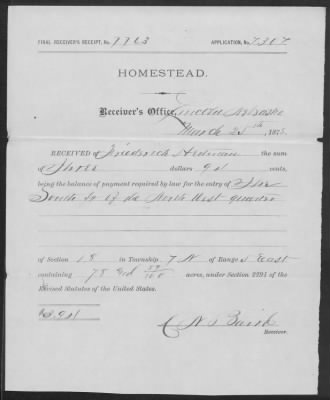 FINAL RECEIVER'S RECEIPT, No. 7763 APPLICATION, No. 7307
HOMESTEAD.
Receiver's Office, Lincoln Nebraska
March 25th, 1875.
RECEIVED of Friederich the sum
of Three dollars 94 cents,
being the balance of payment required by law for the entry of The
South ½ of the North West quarter
of Section 18 in Township 7 N of Range 4 East
containing 78 and /100 acres, under Section 2291 of the
Revised Statutes of the United States.
$3.94
Receiver.